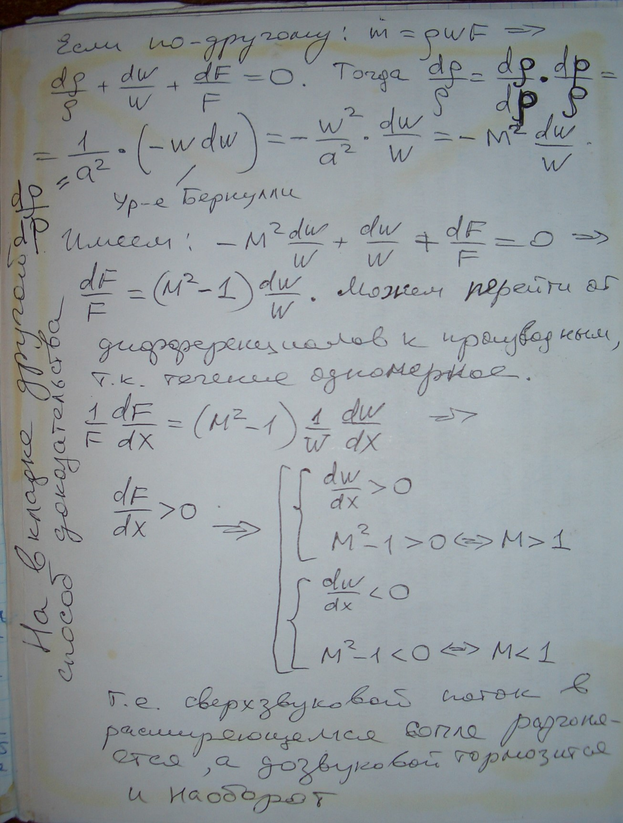 Если по-другому: ṁ = ρwF =>
dρ/ρ + dw/w + dF/F = 0. Тогда dρ/ρ = dρ/dp · dp/ρ =
= 1/a² · (-w dw) = - w²/a² · dw/w = - M² dw/w.
Ур-е Бернулли
Имеем: - M² dw/w + dw/w + dF/F = 0 =>
dF/F = (M²-1) dw/w. Можем перейти от
дифференциалов к производным,
т.к. течение одномерное.
1/F dF/dx = (M²-1) 1/w dw/dx =>
dF/dx > 0 => [ { dw/dx > 0
M²-1 > 0 <=> M > 1
{ dw/dx < 0
M²-1 < 0 <=> M < 1
Т.е. сверхзвуковой поток в
расширяющемся сопле разгоня-
ется, а дозвуковой тормозится
и наоборот
На вкладке другой
способ доказательства